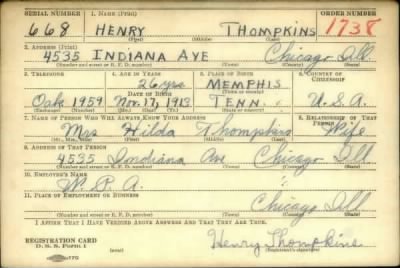 SERIAL NUMBER 1. NAME (Print) ORDER NUMBER
668 HENRY THOMPKINS 1738
(First) (Middle) (Last)
2. ADDRESS (Print)
4535 INDIANA AVE Chicago Ill.
(Number and street or R. F. D. number) (Town) (County) (State)
3. TELEPHONE 4. AGE IN YEARS 5. PLACE OF BIRTH 6. COUNTRY OF CITIZENSHIP
26 yrs MEMPHIS
DATE OF BIRTH
Oak 1959 Nov. 17, 1913 TENN. U.S.A.
(Exchange) (Number) (Mo.) (Day) (Yr.) (State or country)
7. NAME OF PERSON WHO WILL ALWAYS KNOW YOUR ADDRESS 8. RELATIONSHIP OF THAT PERSON
Mrs Hilda Thompkins Wife
(Mr., Mrs., Miss) (First) (Middle) (Last)
9. ADDRESS OF THAT PERSON
4535 Indiana Ave Chicago Ill
(Number and street or R. F. D. number) (Town) (County) (State)
10. EMPLOYER'S NAME
W.P.A.
11. PLACE OF EMPLOYMENT OR BUSINESS
Chicago Ill
(Number and street or R. F. D. number) (Town) (County) (State)
I AFFIRM THAT I HAVE VERIFIED ABOVE ANSWERS AND THAT THEY ARE TRUE.
REGISTRATION CARD
D. S. S. FORM 1 (over) Henry Thompkins
(Registrant's signature)